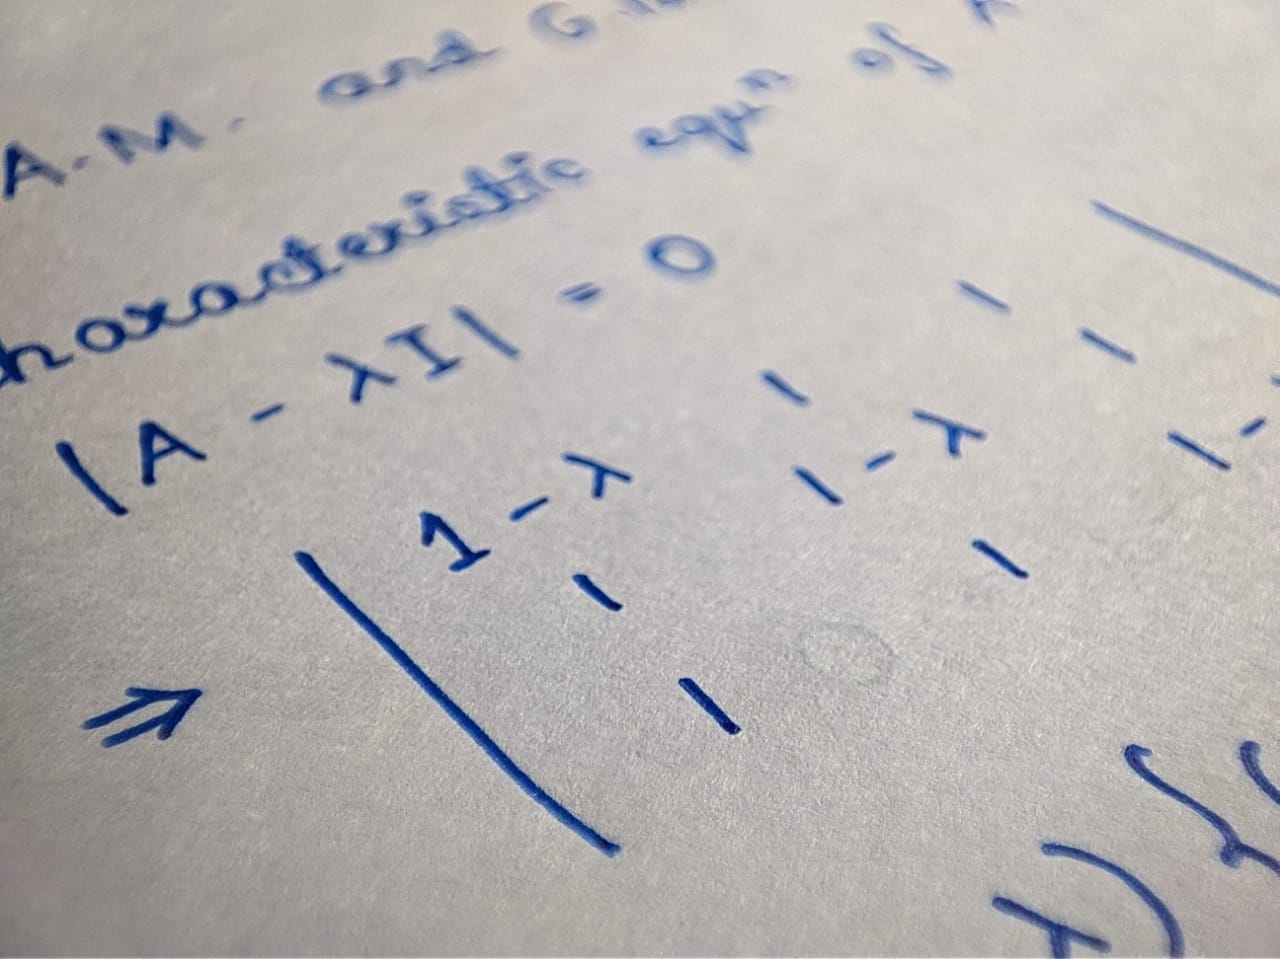 A.M. and G.
haracteristic equⁿ of
|A - λI| = 0
⇒ | 1-λ 1 1 |
1 1-λ 1
1 1 1-
λ) {(